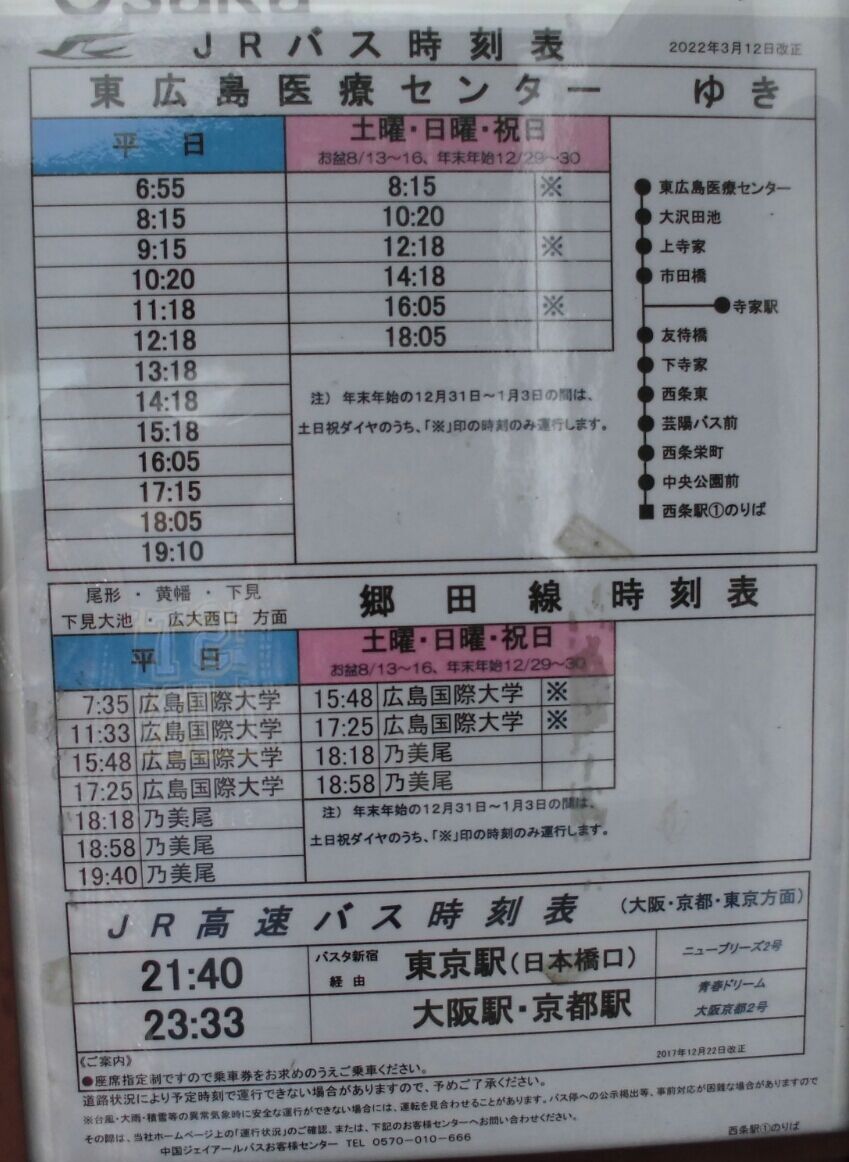 Osaka
JRバス時刻表 2022年3月12日改正
東広島医療センター ゆき
平日 土曜・日曜・祝日
お盆8/13～16、年末年始12/29～30
6:55 8:15 ※
8:15 10:20
9:15 12:18 ※
10:20 14:18
11:18 16:05 ※
12:18 18:05
13:18
14:18
15:18
16:05
17:15
18:05
19:10
注） 年末年始の12月31日～1月3日の間は、
土日祝ダイヤのうち、「※」印の時刻のみ運行します。
東広島医療センター
大沢田池
上寺家
市田橋
寺家駅
友待橋
下寺家
西条東
芸陽バス前
西条栄町
中央公園前
西条駅①のりば
尾形・黄幡・下見
下見大池・広大西口 方面
郷田線時刻表
平日 土曜・日曜・祝日
お盆8/13～16、年末年始12/29～30
7:35 広島国際大学 15:48 広島国際大学 ※
11:33 広島国際大学 17:25 広島国際大学 ※
15:48 広島国際大学 18:18 乃美尾
17:25 広島国際大学 18:58 乃美尾
18:18 乃美尾
18:58 乃美尾
19:40 乃美尾
注） 年末年始の12月31日～1月3日の間は、
土日祝ダイヤのうち、「※」印の時刻のみ運行します。
JR高速バス時刻表 （大阪・京都・東京方面）
21:40 バスタ新宿経由 東京駅（日本橋口） ニューブリーズ2号
23:33 大阪駅・京都駅 青春ドリーム大阪京都2号
《ご案内》 2017年12月22日改正
●座席指定制ですので乗車券をお求めのうえご乗車ください。
道路状況により予定時刻で運行できない場合がありますので、予めご了承ください。
※台風・大雨・積雪等の異常気象時に安全な運行ができない場合には、運転を見合わせることがあります。バス停への公示掲出等、事前対応が困難な場合がありますので
その際は、当社ホームページ上の「運行状況」のご確認、または、下記のお客様センターへお問い合わせください。
中国ジェイアールバスお客様センター TEL 0570-010-666
西条駅①のりば